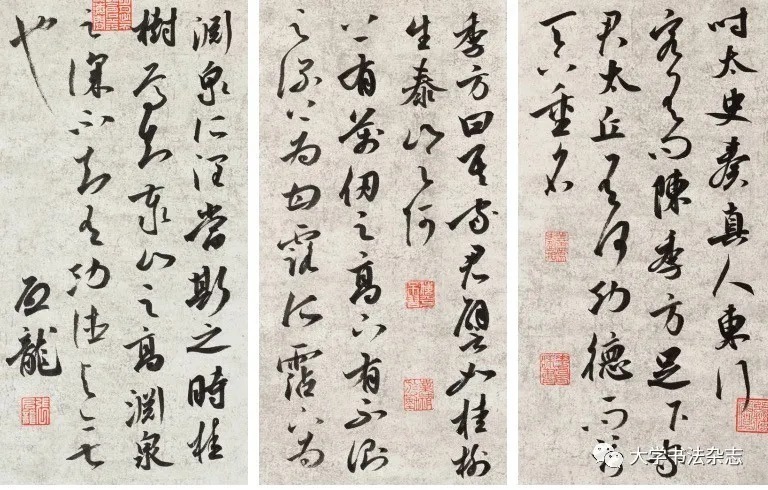 時太史奏真人東行
客有問陳季方足下家
君太丘有何功德而荷
天下重名
季方曰吾家君譬如桂樹
生泰山之阿
上有萬仞之高下有不測
之深上為甘露所霑下為
淵泉所潤當斯之時桂
樹焉知泰山之高淵泉
之深不知有功德與無
也
龍
大字书法杂志